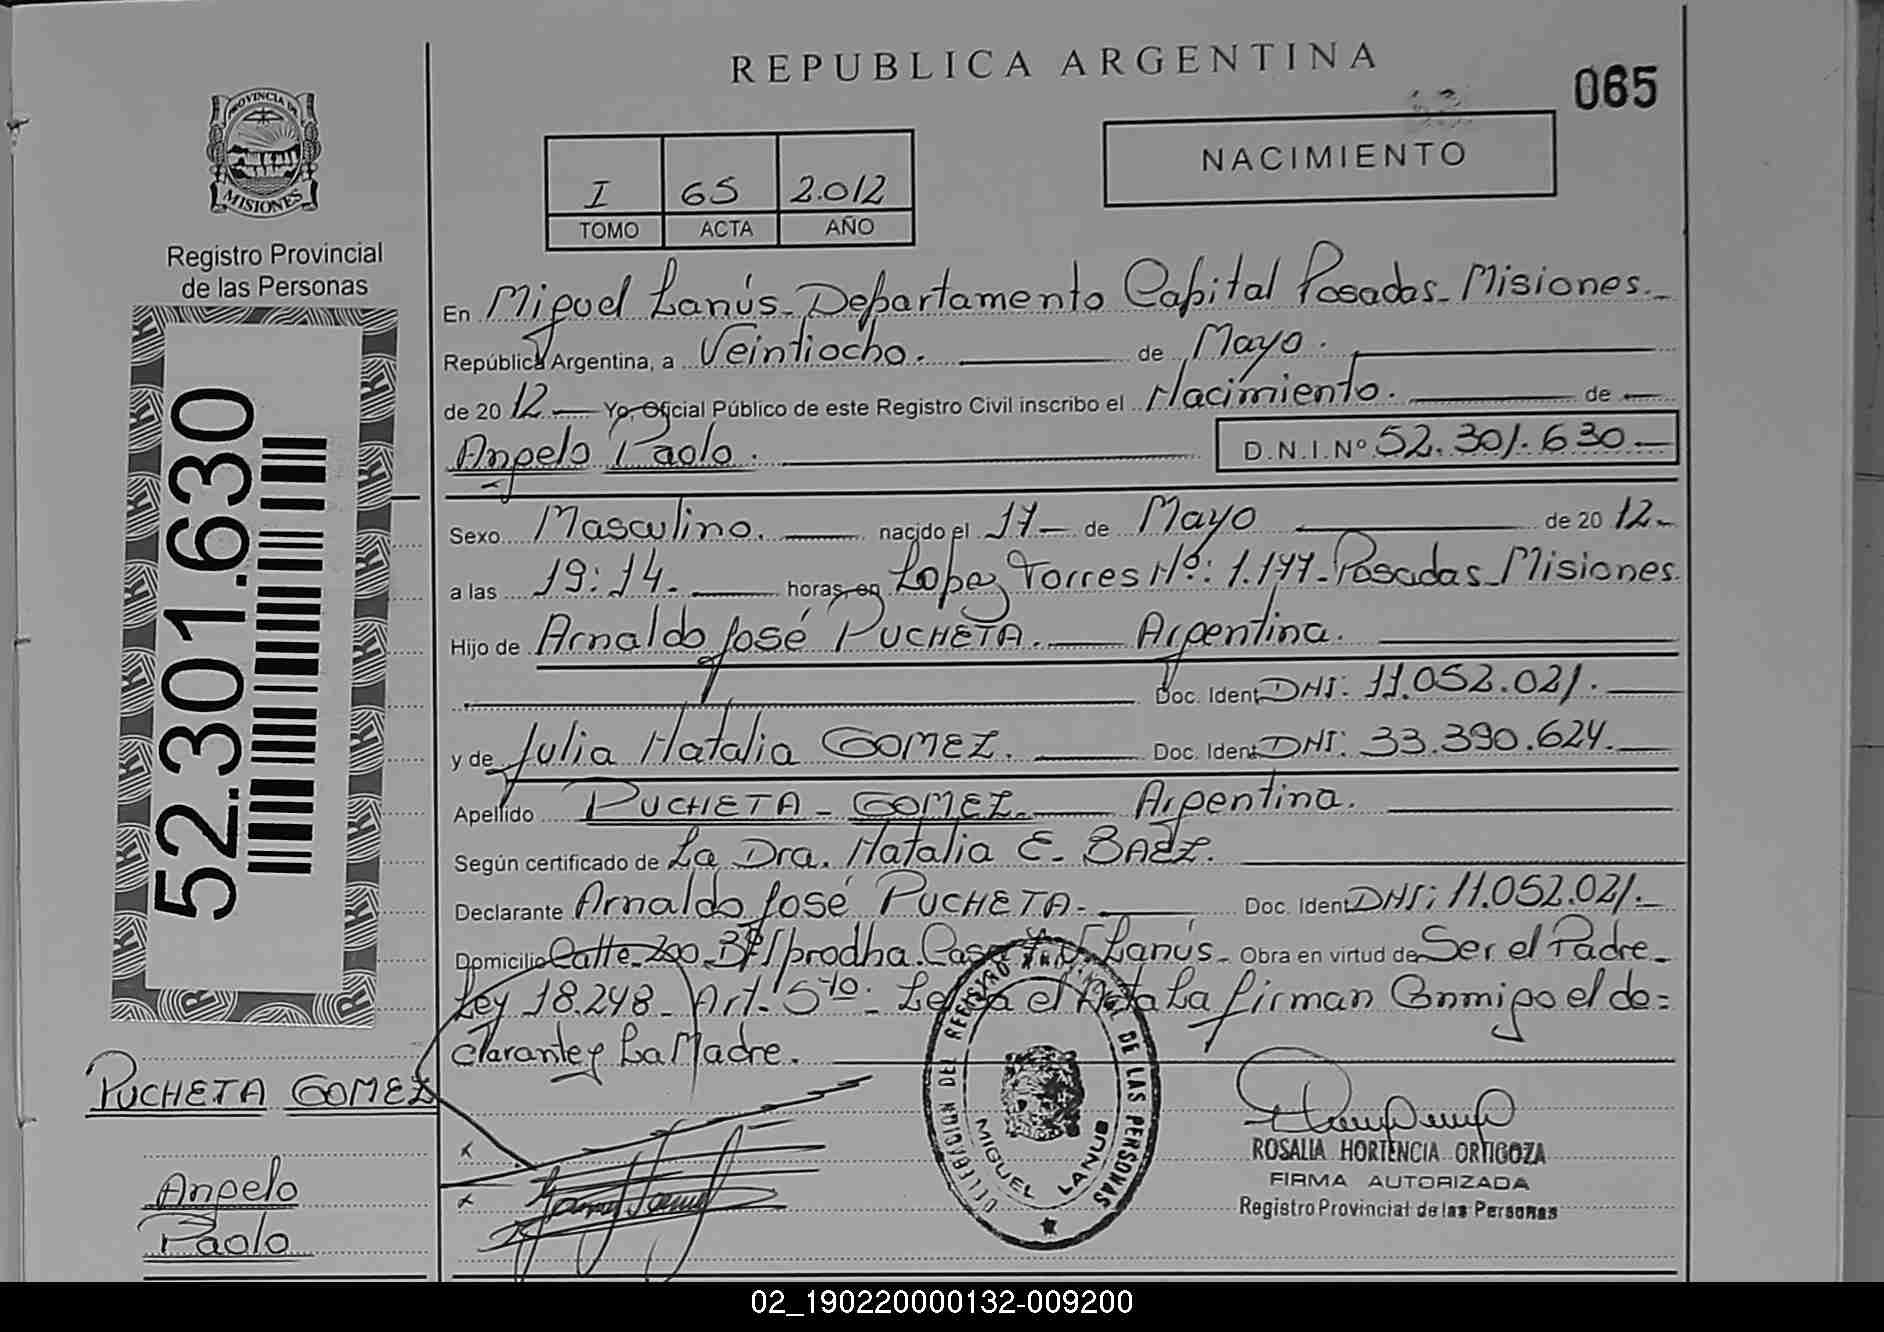 REPUBLICA ARGENTINA
065
PROVINCIA DE
MISIONES
Registro Provincial
de las Personas
I 65 2.012
TOMO ACTA AÑO
NACIMIENTO
En Miguel Lanús - Departamento Capital Posadas - Misiones.-
República Argentina, a Veintiocho. de Mayo.
de 20 12 Yo, Oficial Público de este Registro Civil inscribo el Nacimiento. de
Angelo Paolo. D.N.I.Nº 52.301.630
Sexo Masculino. nacido el 17 de Mayo de 20 12-
a las 19:14. horas en Lopez Torres Nº: 1.177 - Posadas - Misiones
Hijo de Arnaldo José PUCHETA. Argentina.
Doc. Ident DNI: 11.052.021.
y de Julia Natalia GOMEZ. Doc. Ident DNI: 33.390.624.
Apellido PUCHETA - GOMEZ. Argentina.
Según certificado de La Dra. Natalia E. BAEZ.
Declarante Arnaldo José PUCHETA- Doc. Ident DNI: 11.052.021.-
Domicilio Calle 200 Iprodha. Lanús- Obra en virtud de Ser el Padre-
Ley 18.248- Art- 5to.- el Acta La firman Conmigo el de=
clarante y La Madre.
52.301.630
PUCHETA GOMEZ
Angelo
Paolo
x
x
DELEGACION DEL REGISTRO DE LAS PERSONAS
MIGUEL LANUS
ROSALIA HORTENCIA ORTIGOZA
FIRMA AUTORIZADA
Registro Provincial de las Personas
02_190220000132-009200